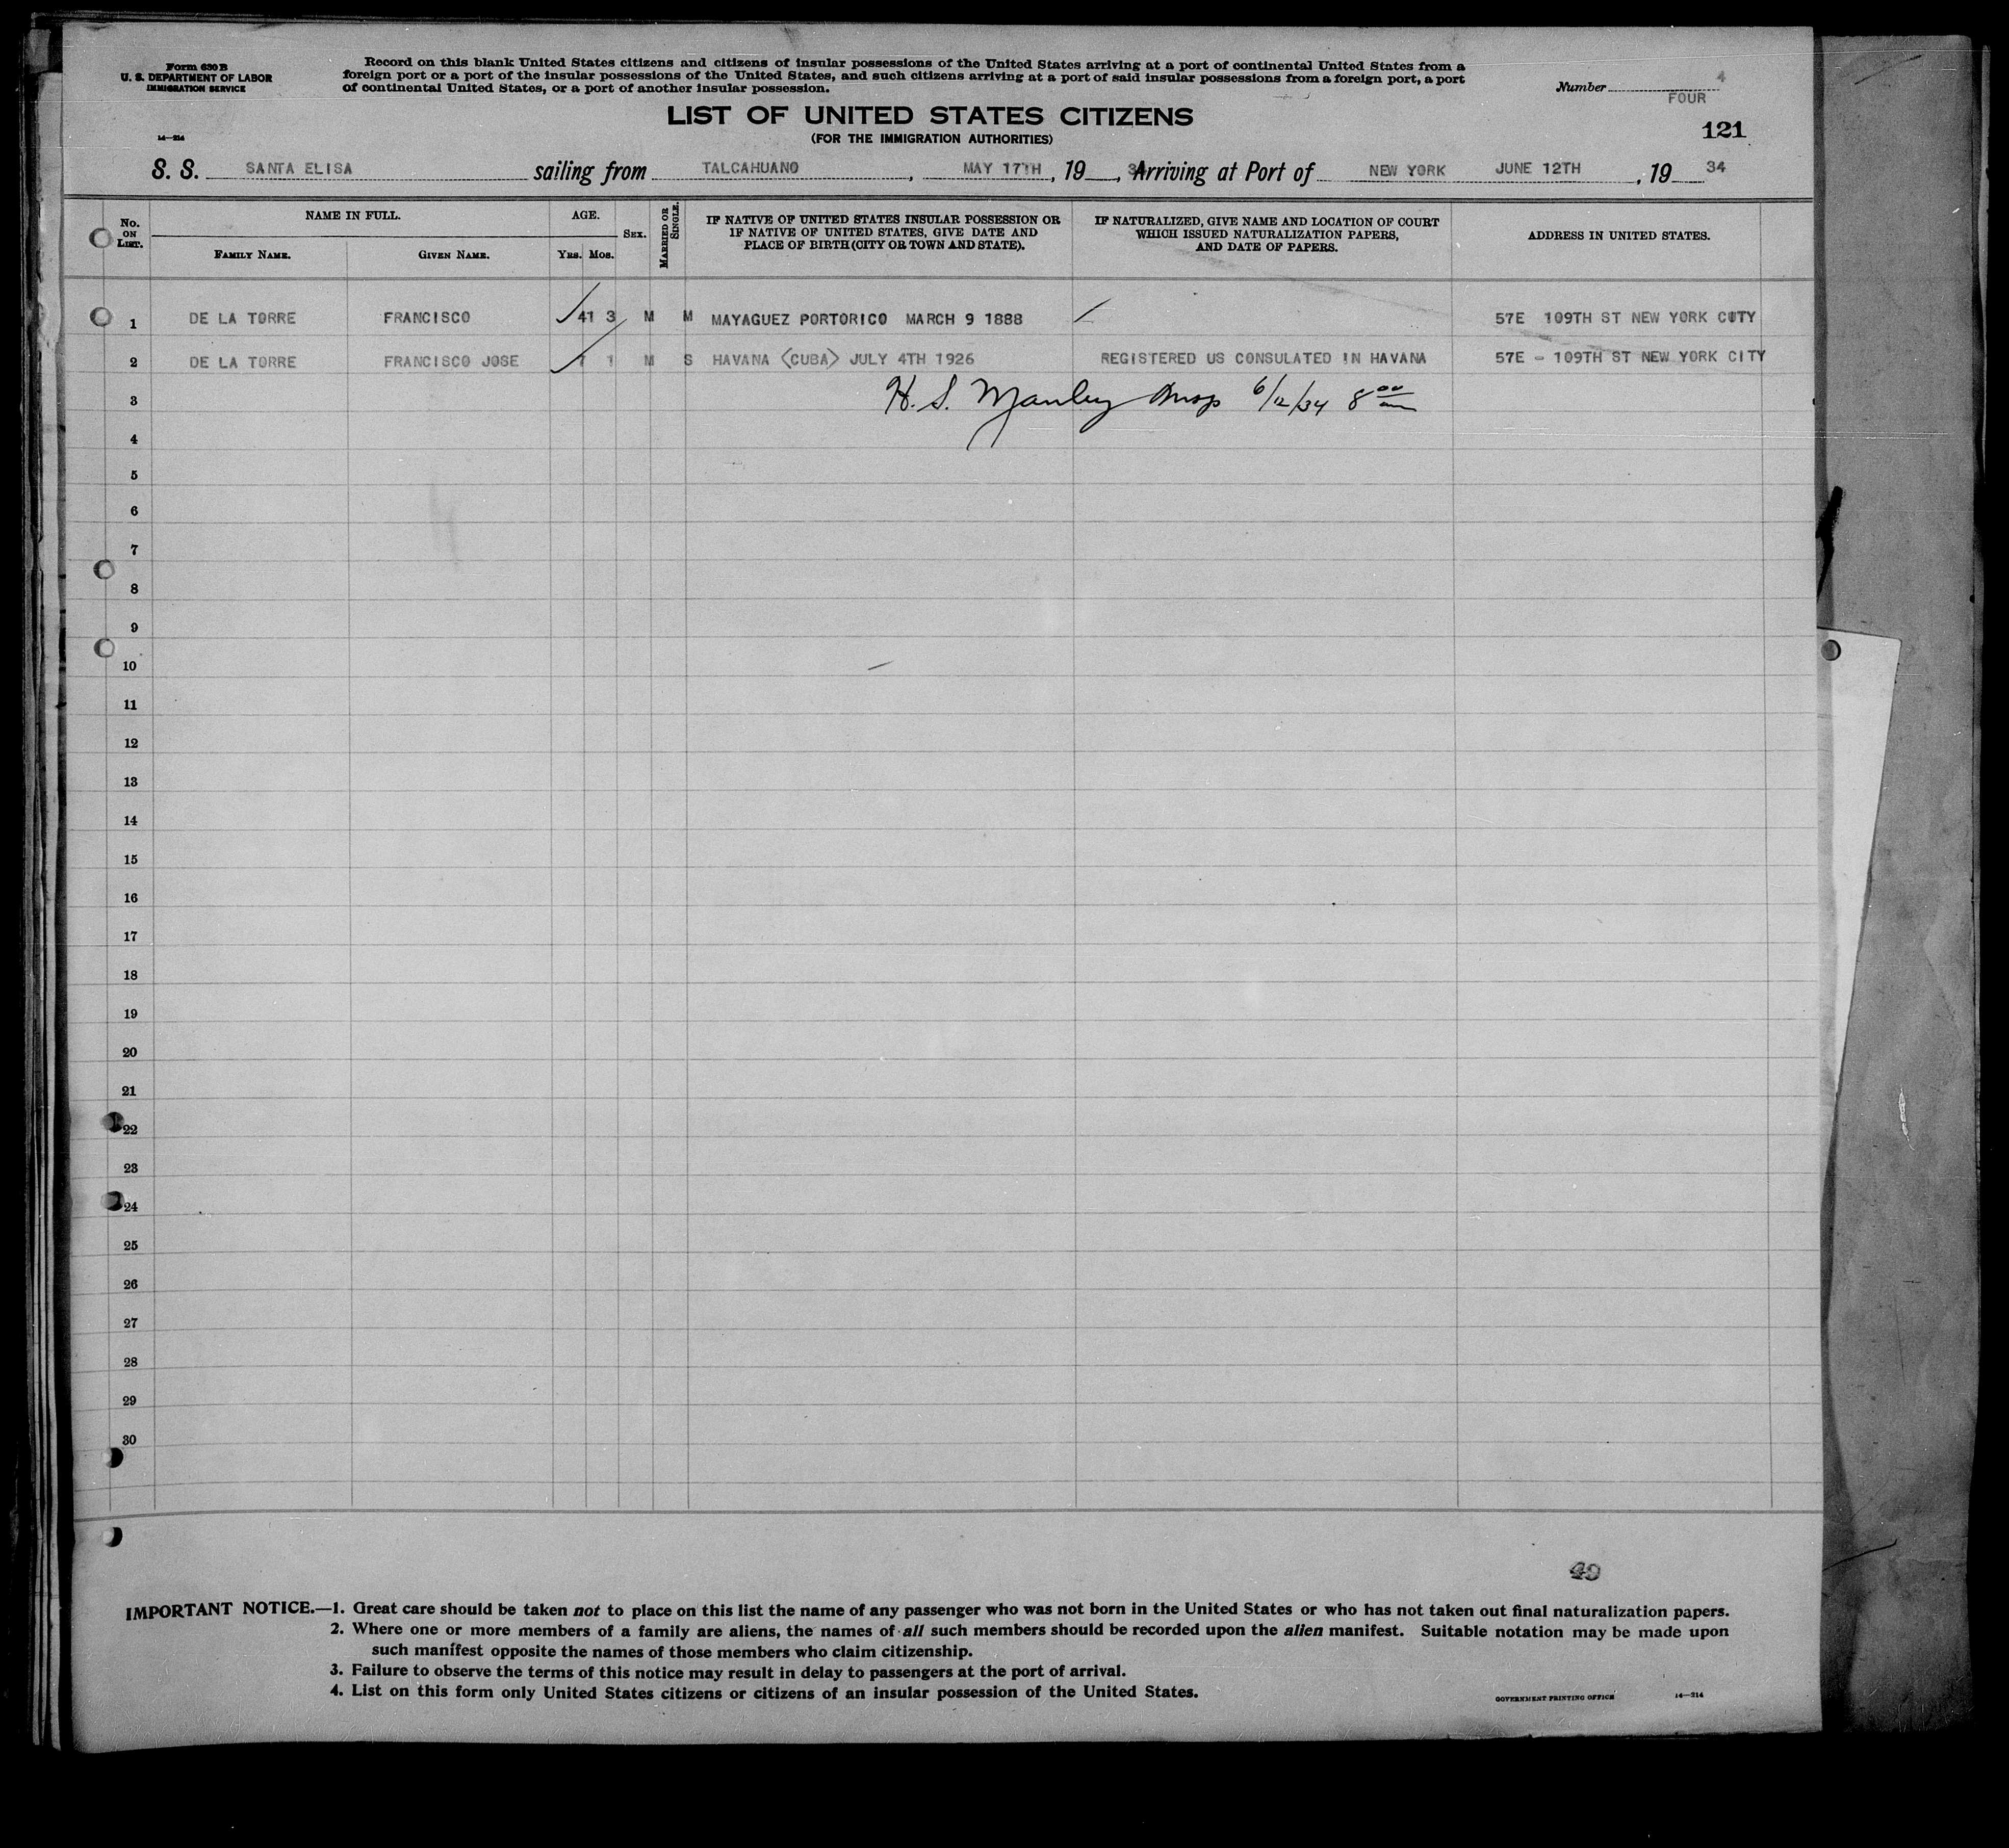 Form 630 B
U. S. DEPARTMENT OF LABOR
IMMIGRATION SERVICE
14—214
Record on this blank United States citizens and citizens of insular possessions of the United States arriving at a port of continental United States from a
foreign port or a port of the insular possessions of the United States, and such citizens arriving at a port of said insular possessions from a foreign port, a port
of continental United States, or a port of another insular possession.
Number 4
FOUR
121
LIST OF UNITED STATES CITIZENS
(FOR THE IMMIGRATION AUTHORITIES)
S. S. SANTA ELISA sailing from TALCAHUANO, MAY 17TH, 19 34, Arriving at Port of NEW YORK JUNE 12TH, 19 34
No. ON LIST. NAME IN FULL. AGE. SEX. MARRIED OR SINGLE. IF NATIVE OF UNITED STATES INSULAR POSSESSION OR IF NATIVE OF UNITED STATES, GIVE DATE AND PLACE OF BIRTH (CITY OR TOWN AND STATE). IF NATURALIZED, GIVE NAME AND LOCATION OF COURT WHICH ISSUED NATURALIZATION PAPERS, AND DATE OF PAPERS. ADDRESS IN UNITED STATES.
FAMILY NAME. GIVEN NAME. YRS. MOS.
1 DE LA TORRE FRANCISCO 41 3 M M MAYAGUEZ PORTORICO MARCH 9 1888 57E 109TH ST NEW YORK CUTY
2 DE LA TORRE FRANCISCO JOSE 7 1 M S HAVANA (CUBA) JULY 4TH 1926 REGISTERED US CONSULATED IN HAVANA 57E - 109TH ST NEW YORK CITY
3 H. S. Manley Insp 6/12/34 8 00 am
4
5
6
7
8
9
10
11
12
13
14
15
16
17
18
19
20
21
22
23
24
25
26
27
28
29
30
49
IMPORTANT NOTICE.—1. Great care should be taken not to place on this list the name of any passenger who was not born in the United States or who has not taken out final naturalization papers.
2. Where one or more members of a family are aliens, the names of all such members should be recorded upon the alien manifest. Suitable notation may be made upon
such manifest opposite the names of those members who claim citizenship.
3. Failure to observe the terms of this notice may result in delay to passengers at the port of arrival.
4. List on this form only United States citizens or citizens of an insular possession of the United States.
GOVERNMENT PRINTING OFFICE 14—214